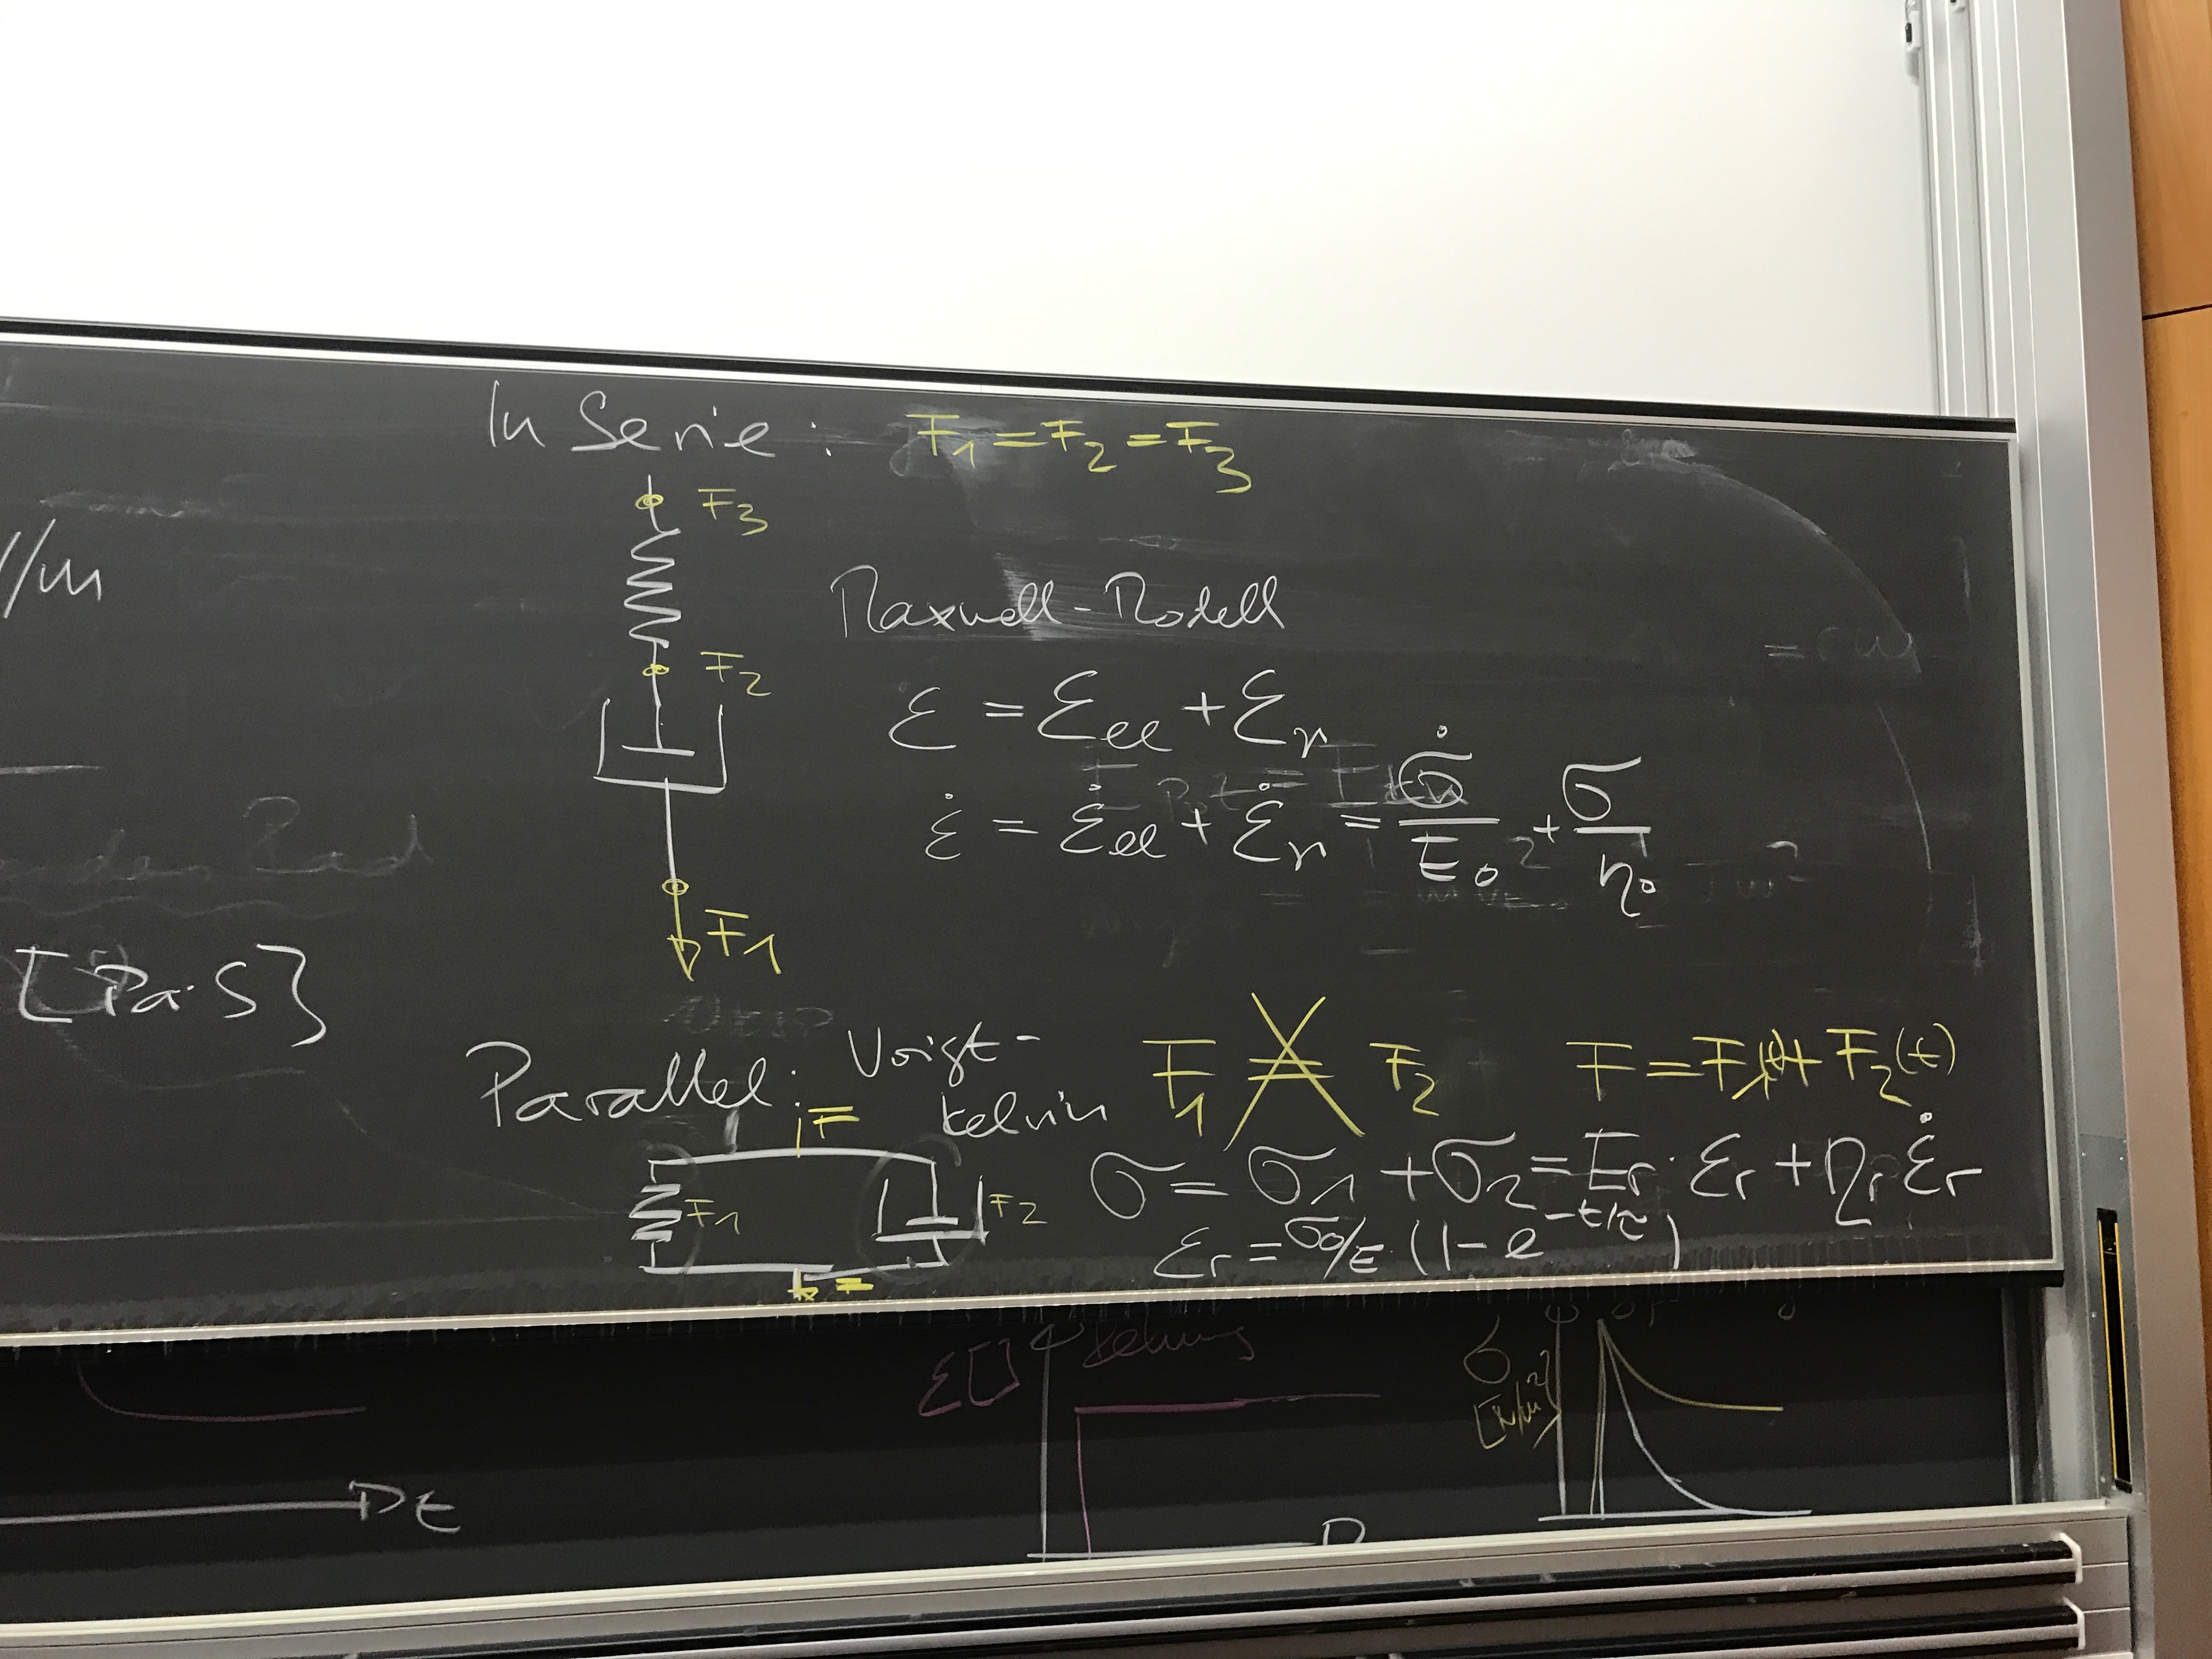 In Serie: F₁ = F₂ = F₃
F₃
//m
Maxwell-Modell
F₂
ε = ε_el + ε_η
ε̇ = ε̇_el + ε̇_η = σ̇/E₀ + σ/η₀
F₁
[Pa·s]
Parallel: Voigt-
Kelvin
F₁ = F₂
F = F₁(t) + F₂(t)
F
F₁
F₂
σ = σ₁ + σ₂ = E_r · ε_r + η_r ε̇_r
ε_r = σ₀/E · (1 - e^(-t/τ))
F
ε[]
σ
[N/m²]
t